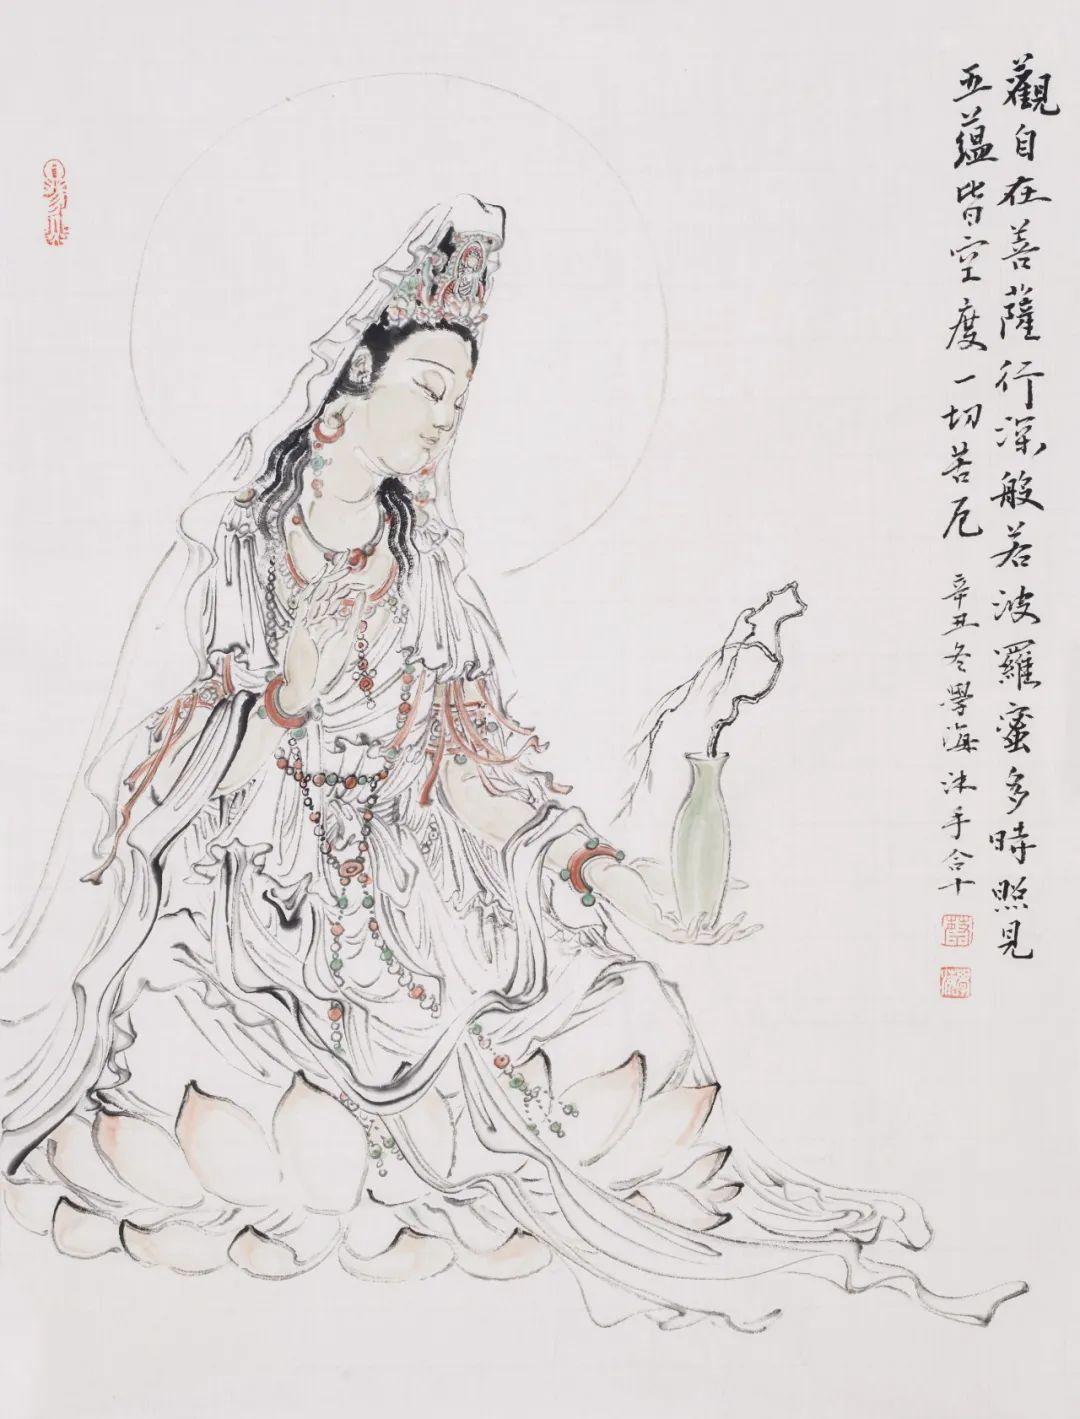 觀自在菩薩行深般若波羅蜜多時照見
五蘊皆空度一切苦厄
辛丑冬學海沐手合十